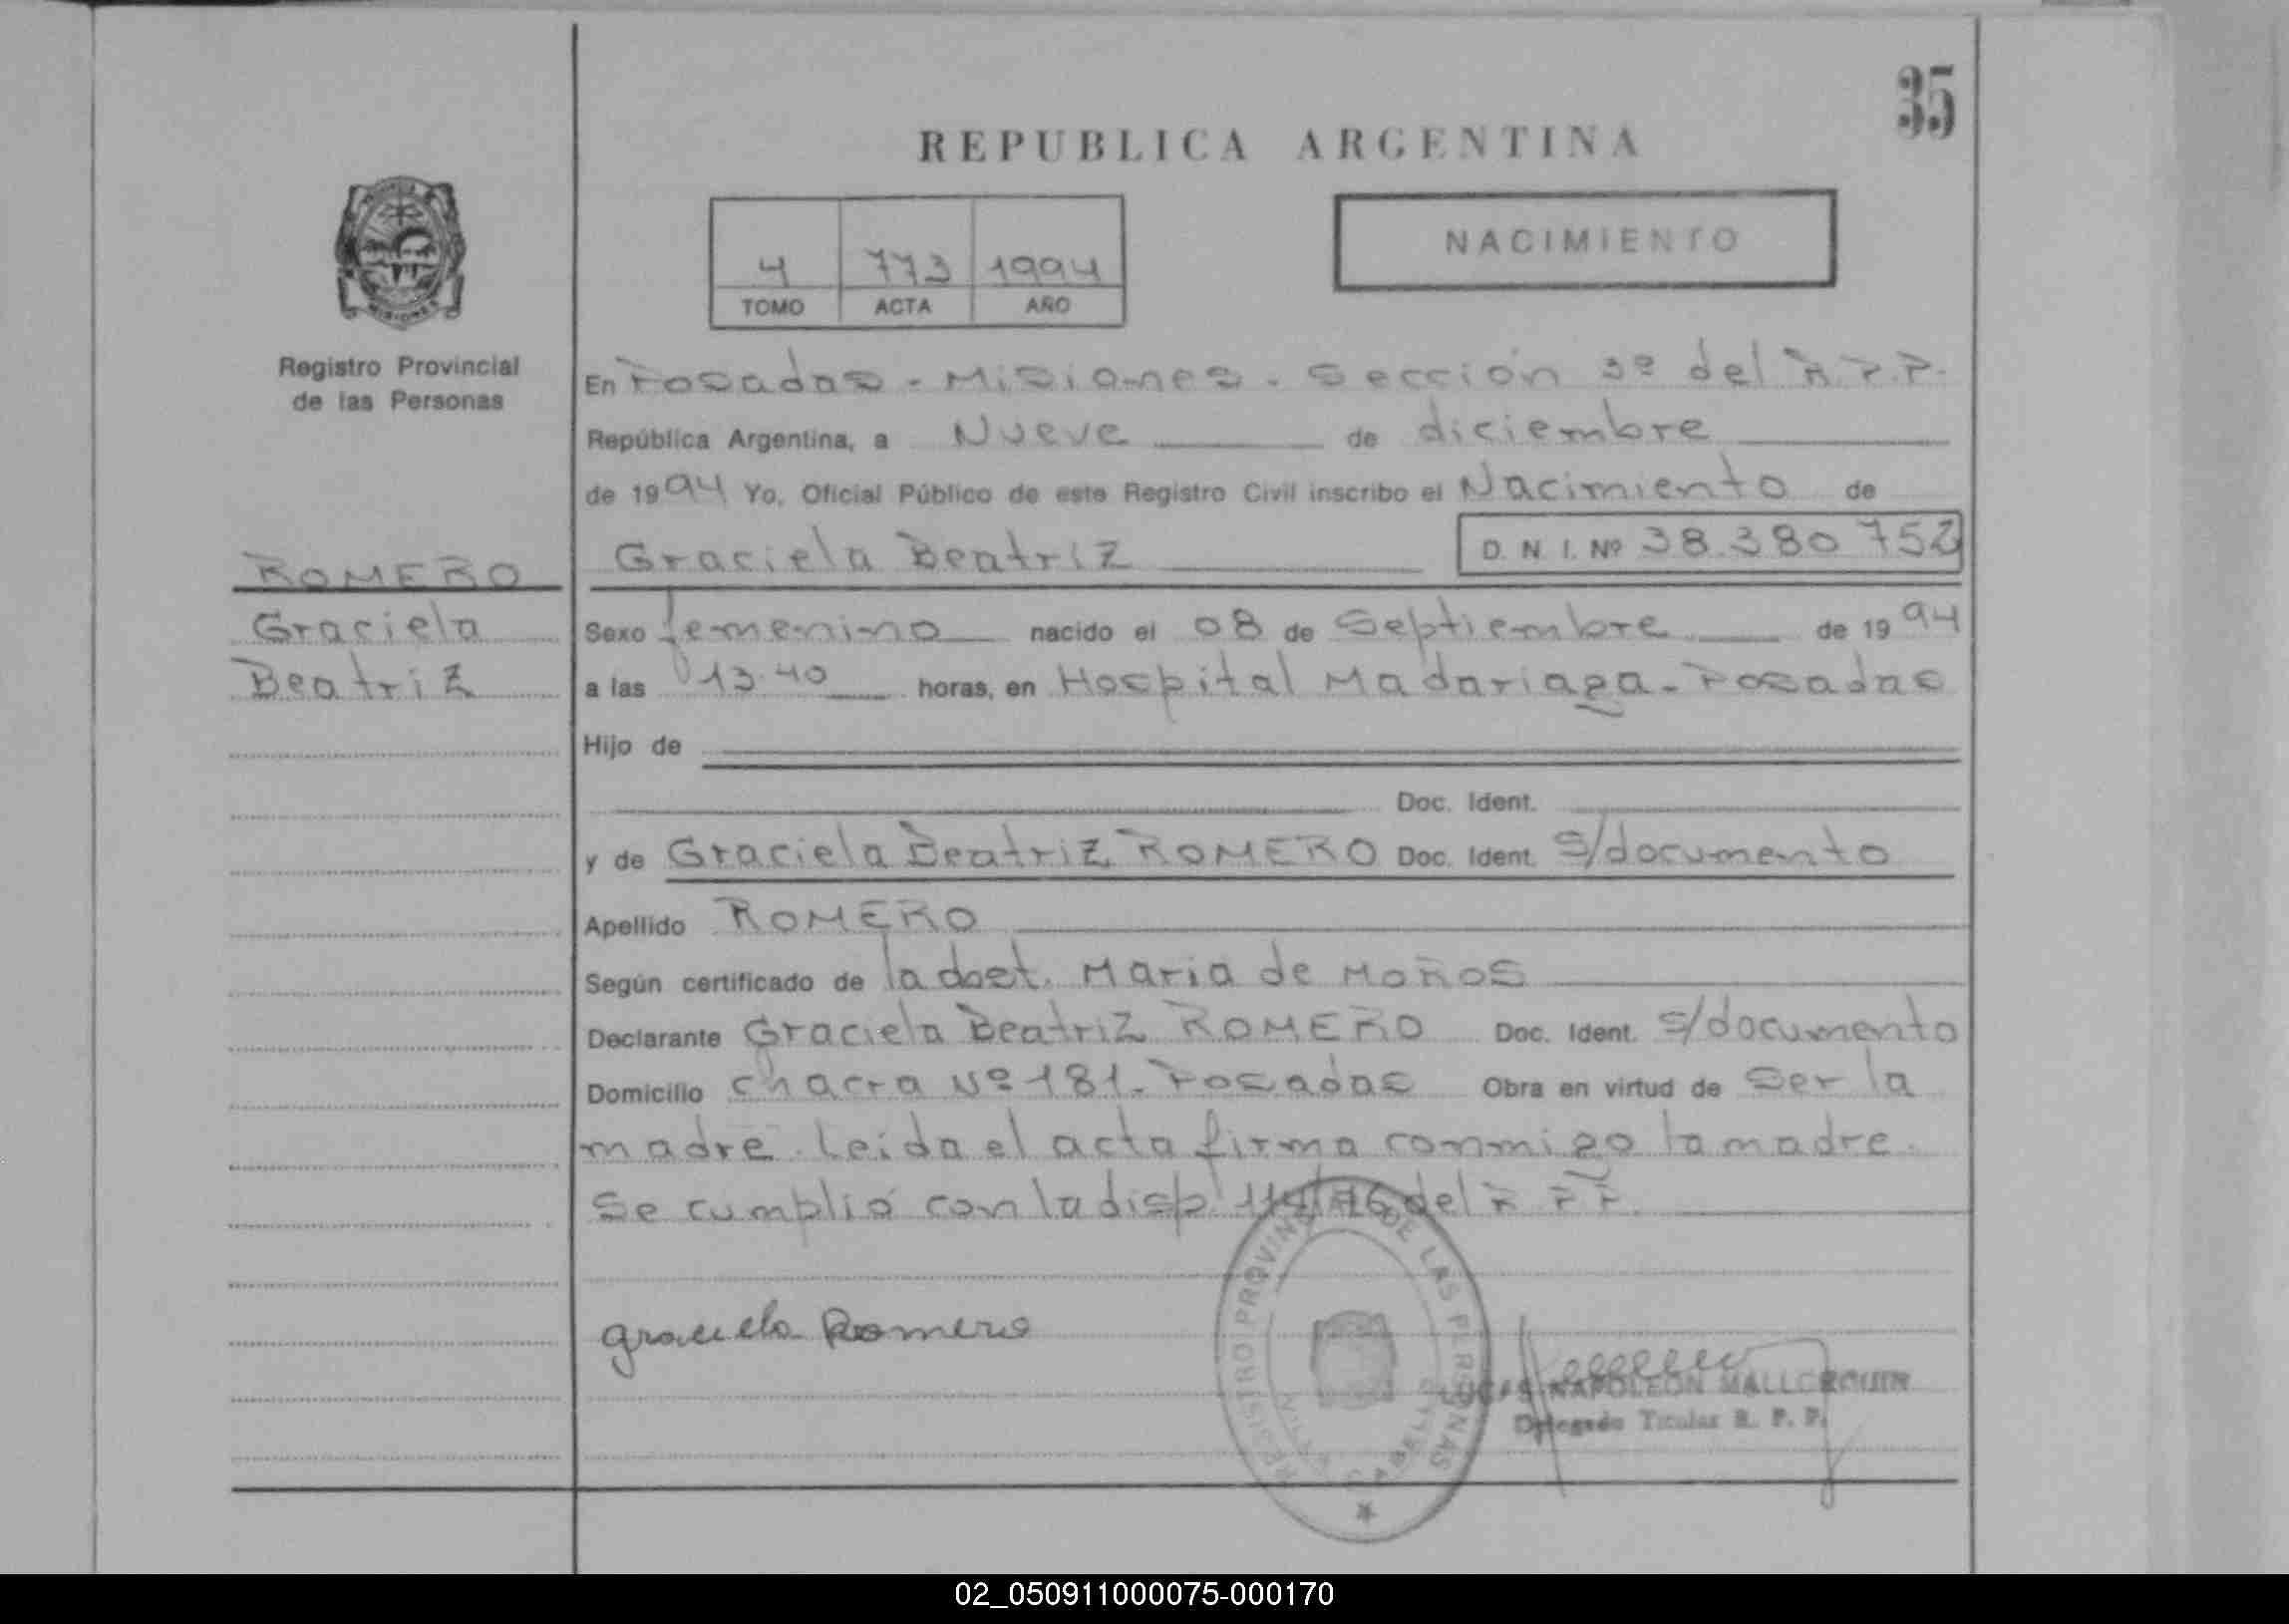 35
REPUBLICA ARGENTINA
NACIMIENTO
4 773 1994
TOMO ACTA AÑO
MISIONES
Registro Provincial
de las Personas
ROMERO
Graciela
Beatriz
En Posadas - Misiones. Sección 3º del R.P.P.
República Argentina, a Nueve de diciembre
de 1994 Yo, Oficial Público de este Registro Civil inscribo el Nacimiento de
Graciela Beatriz D. N. I. Nº 38.380.752
Sexo femenino nacido el 08 de Septiembre de 1994
a las 13.40 horas, en Hospital Madariaga - Posadas
Hijo de
Doc. Ident.
y de Graciela Beatriz ROMERO Doc. Ident. S/documento
Apellido ROMERO
Según certificado de la María de
Declarante Graciela Beatriz ROMERO Doc. Ident. S/documento
Domicilio chacra Nº 181. Posadas Obra en virtud de ser la
madre. Leida el acta firma conmigo la madre.
Se cumplió con la disp. del R P P.
Graciela Romero
REGISTRO PROVINC DE LAS PERSONAS
LUCAS NAPOLEON MALLORQUIN
Delegado Titular R. P. P.
02_050911000075-000170